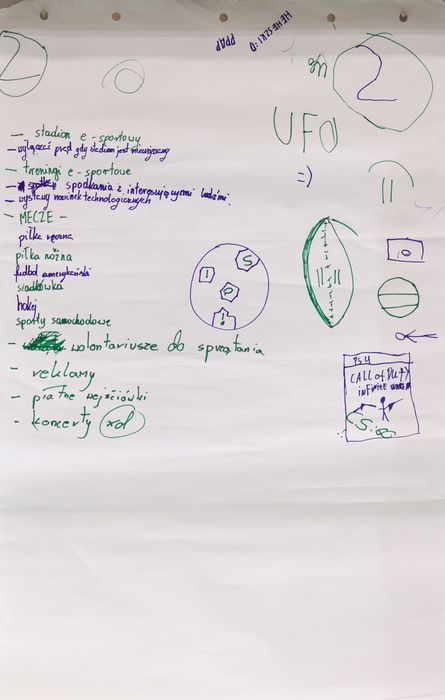 HEHESZKI :D
PPAP
2
2
UFO
=)
- stadion e-sportowy
- wyłączać prąd gdy stadion jest nieużywany
- treningi e-sportowe
- spotkania z interesującymi ludźmi.
- wystawy nowinek technologicznych
- MECZE -
piłka ręczna
piłka nożna
futbol amerykański
siatkówka
hokej
sporty samochodowe
- wolontariusze do sprzątania
- reklamy
- płatne wejściówki
- koncerty xd
1
S
P
!
PS4
CALL of DUTY
infinite